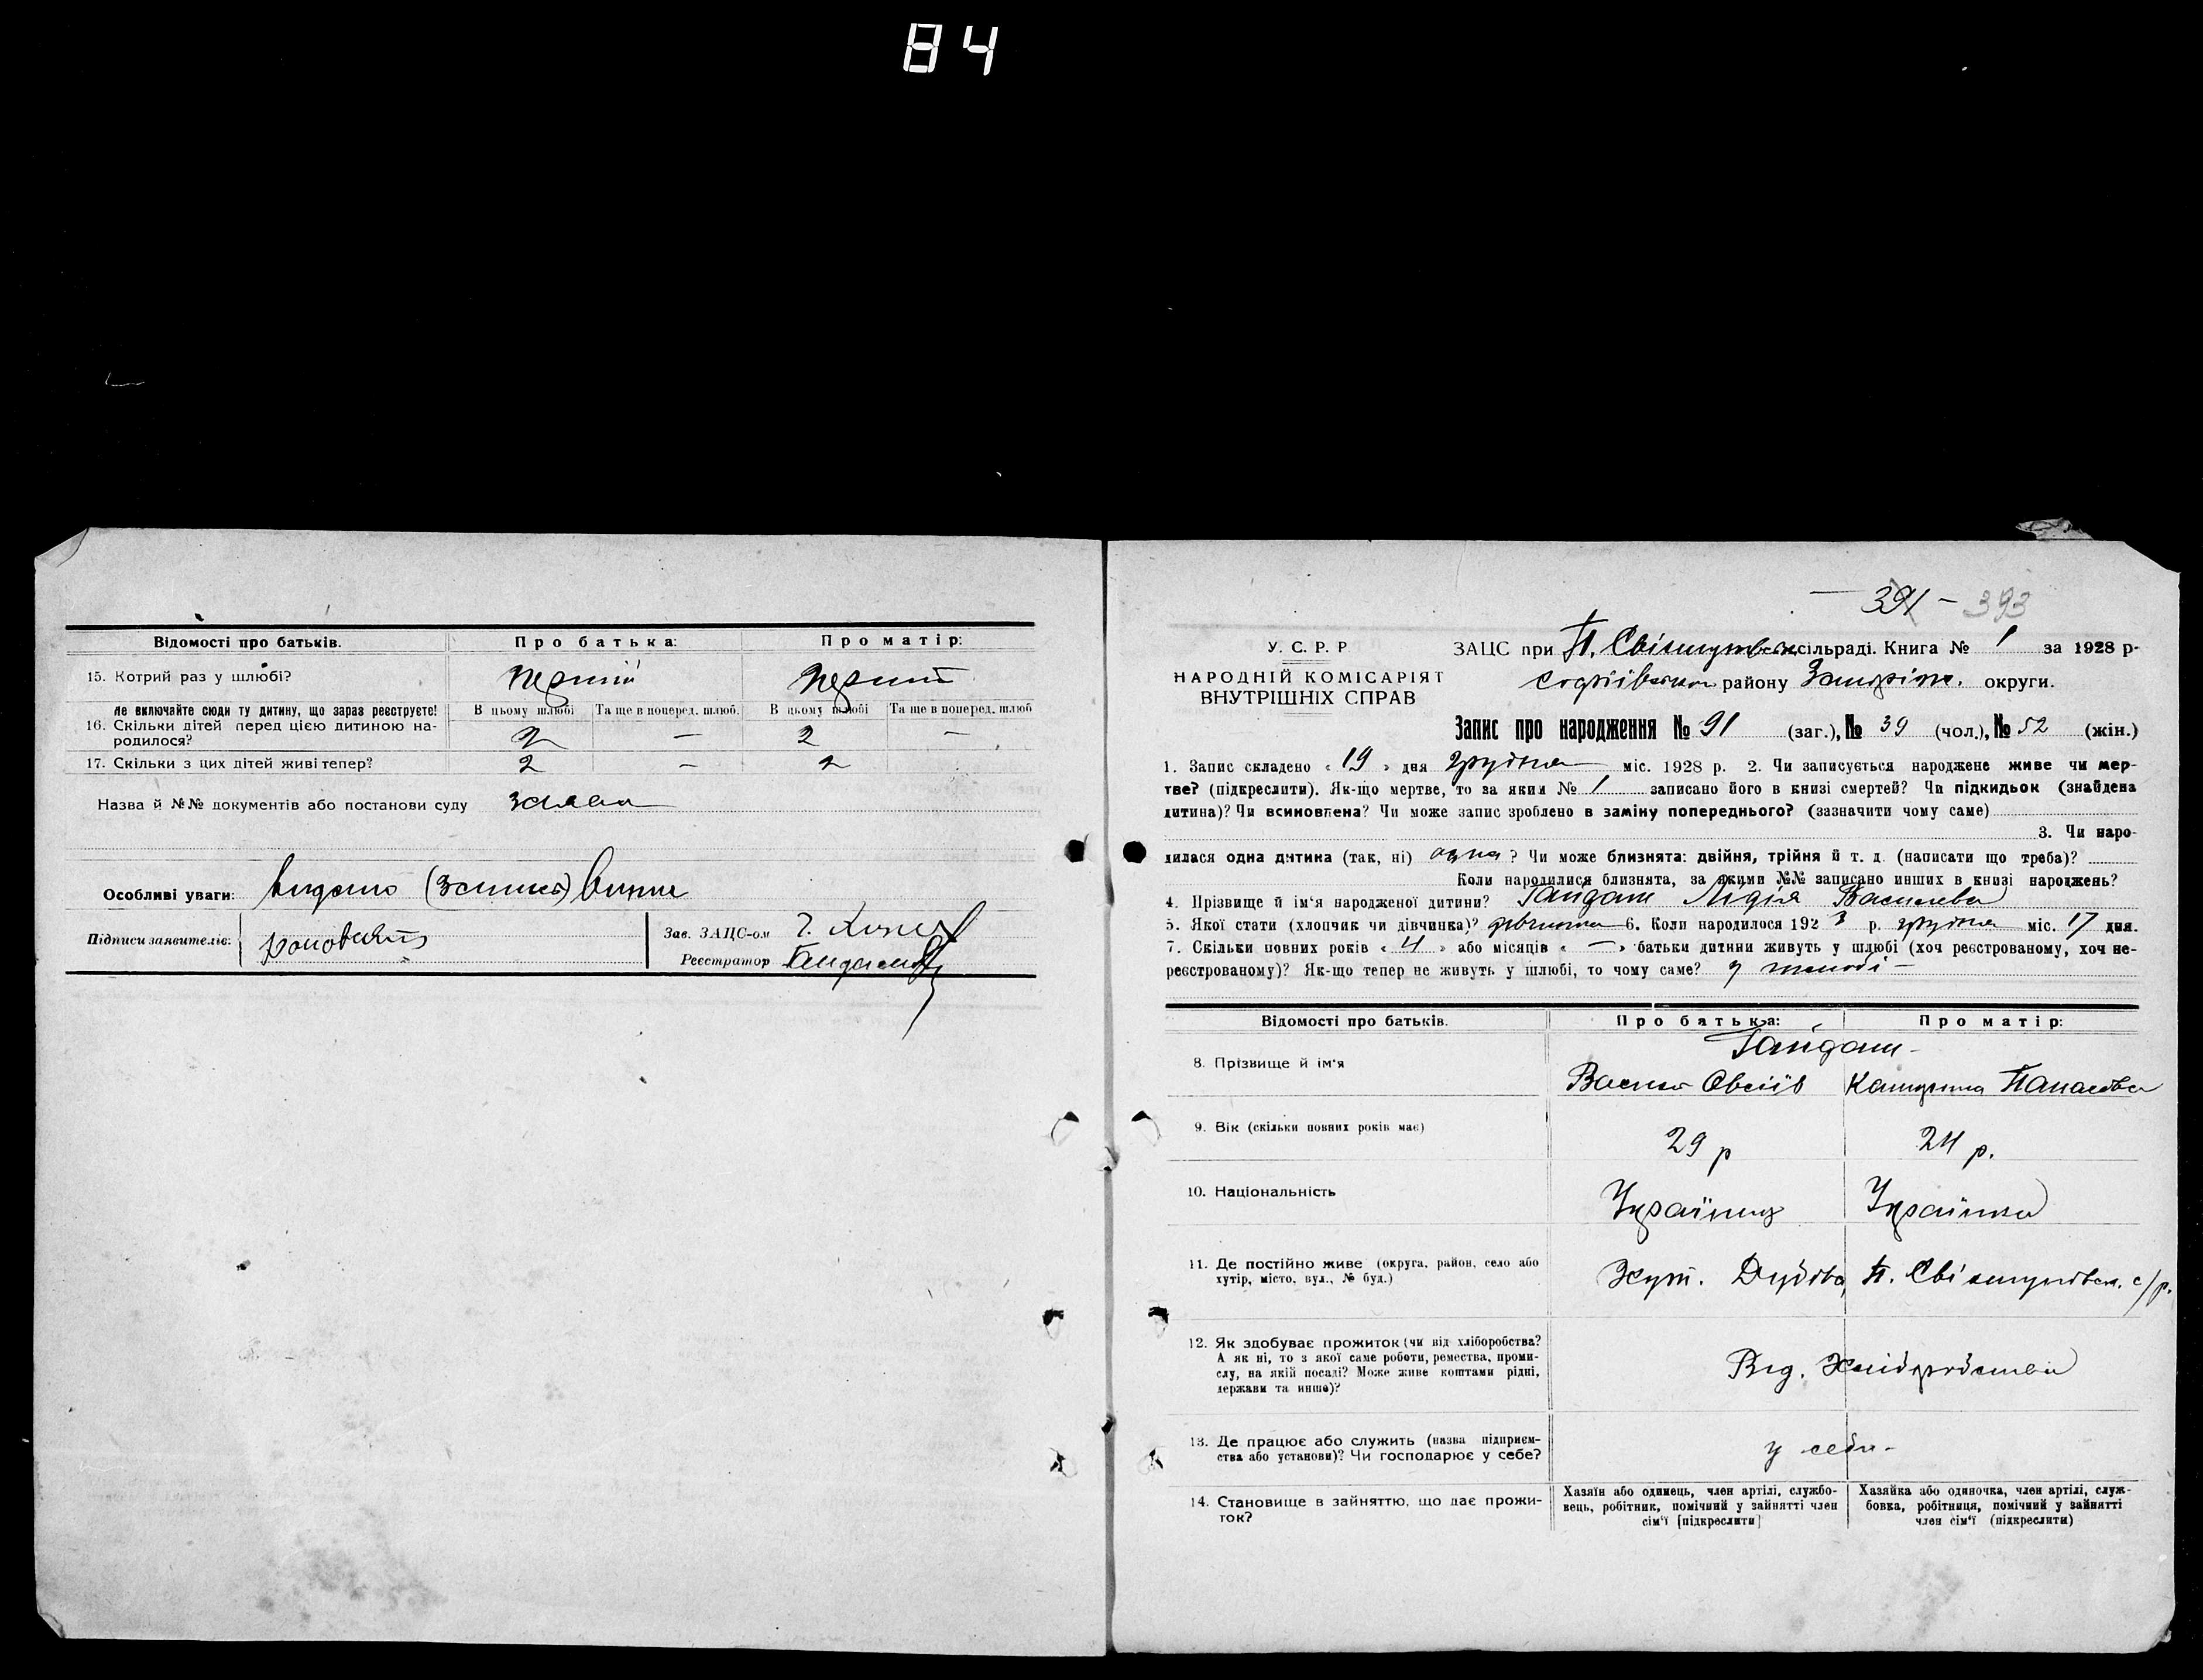 84
Відомості про батьків. Про батька: Про матір:
15. Котрий раз у шлюбі? перший перший
Не включайте сюди ту дитину, що зараз реєструєте! В цьому шлюбі Та ще в поперед. шлюб. В цьому шлюбі Та ще в поперед. шлюб
16. Скільки дітей перед цією дитиною на-
родилося? 2 — 2 —
17. Скільки з цих дітей живі тепер? 2 — 2
Назва й №№ документів або постанови суду заява
Особливі уваги: видано
Підписи заявителів: Зав. ЗАЦС-ом
Реєстратор
391 — 393
У. С. Р. Р
НАРОДНІЙ КОМІСАРІЯТ
ВНУТРІШНІХ СПРАВ
ЗАЦС при сільраді. Книга № 1 за 1928 р-
Софіївського району Запоріж. округи.
Запис про народження № 91 (заг.), № 39 (чол.), № 52 (жін.)
1. Запис складено « 19 » дня грудня міс. 1928 р. 2. Чи записується народжене живе чи мер-
тве? (підкреслити). Як-що мертве, то за яким № / записано його в книзі смертей? Чи підкидьок (знайдена
дитина)? Чи всиновлена? Чи може запис зроблено в заміну попереднього? (зазначити чому саме)
3. Чи наро-
дилася одна дитина (так, ні) одна ? Чи може близнята: двійня, трійня й т. д. (написати що треба)?
Коли народилися близнята, за якими №№ записано инших в книзі народжень?
4. Прізвище й ім'я народженої дитини? Гайдаш Лідія Василева
5. Якої стати (хлопчик чи дівчинка)? дівчинка 6. Коли народилося 192 8 р. грудня міс. 17 дня.
7. Скільки повних років « 4 » або місяців « — » батьки дитини живуть у шлюбі (хоч реєстрованому, хоч не-
реєстрованому)? Як-що тепер не живуть у шлюбі, то чому саме? у шлюбі —
Відомості про батьків. Про батька: Про матір:
Гайдаш -
8. Прізвище й ім'я
Василь Овсіїв Катерина Панасова
9. Вік (скільки повних років має)
29 р 24 р.
10. Національність
Українець Українка
11. Де постійно живе (округа, район, село або
хутір, місто, вул., № буд.)
Хут. с/р.
12. Як здобуває прожиток (чи від хліборобства?
А як ні, то з якої саме роботи, ремества, проми-
слу, на якій посаді? Може живе коштами рідні,
держави та инше)?
Від. Хліборобства
13. Де працює або служить (назва підприєм-
ства або установи)? Чи господарює у себе?
у себе -
14. Становище в зайняттю, що дає прожи-
ток?
Хазяїн або одинець, член артілі, службо-
вець, робітник, помічний у зайнятті член
сім'ї [підкреслити]
Хазяйка або одиночка, член артілі, служ-
бовка, робітниця, помічний у зайнятті
член сім'ї (підкреслити)